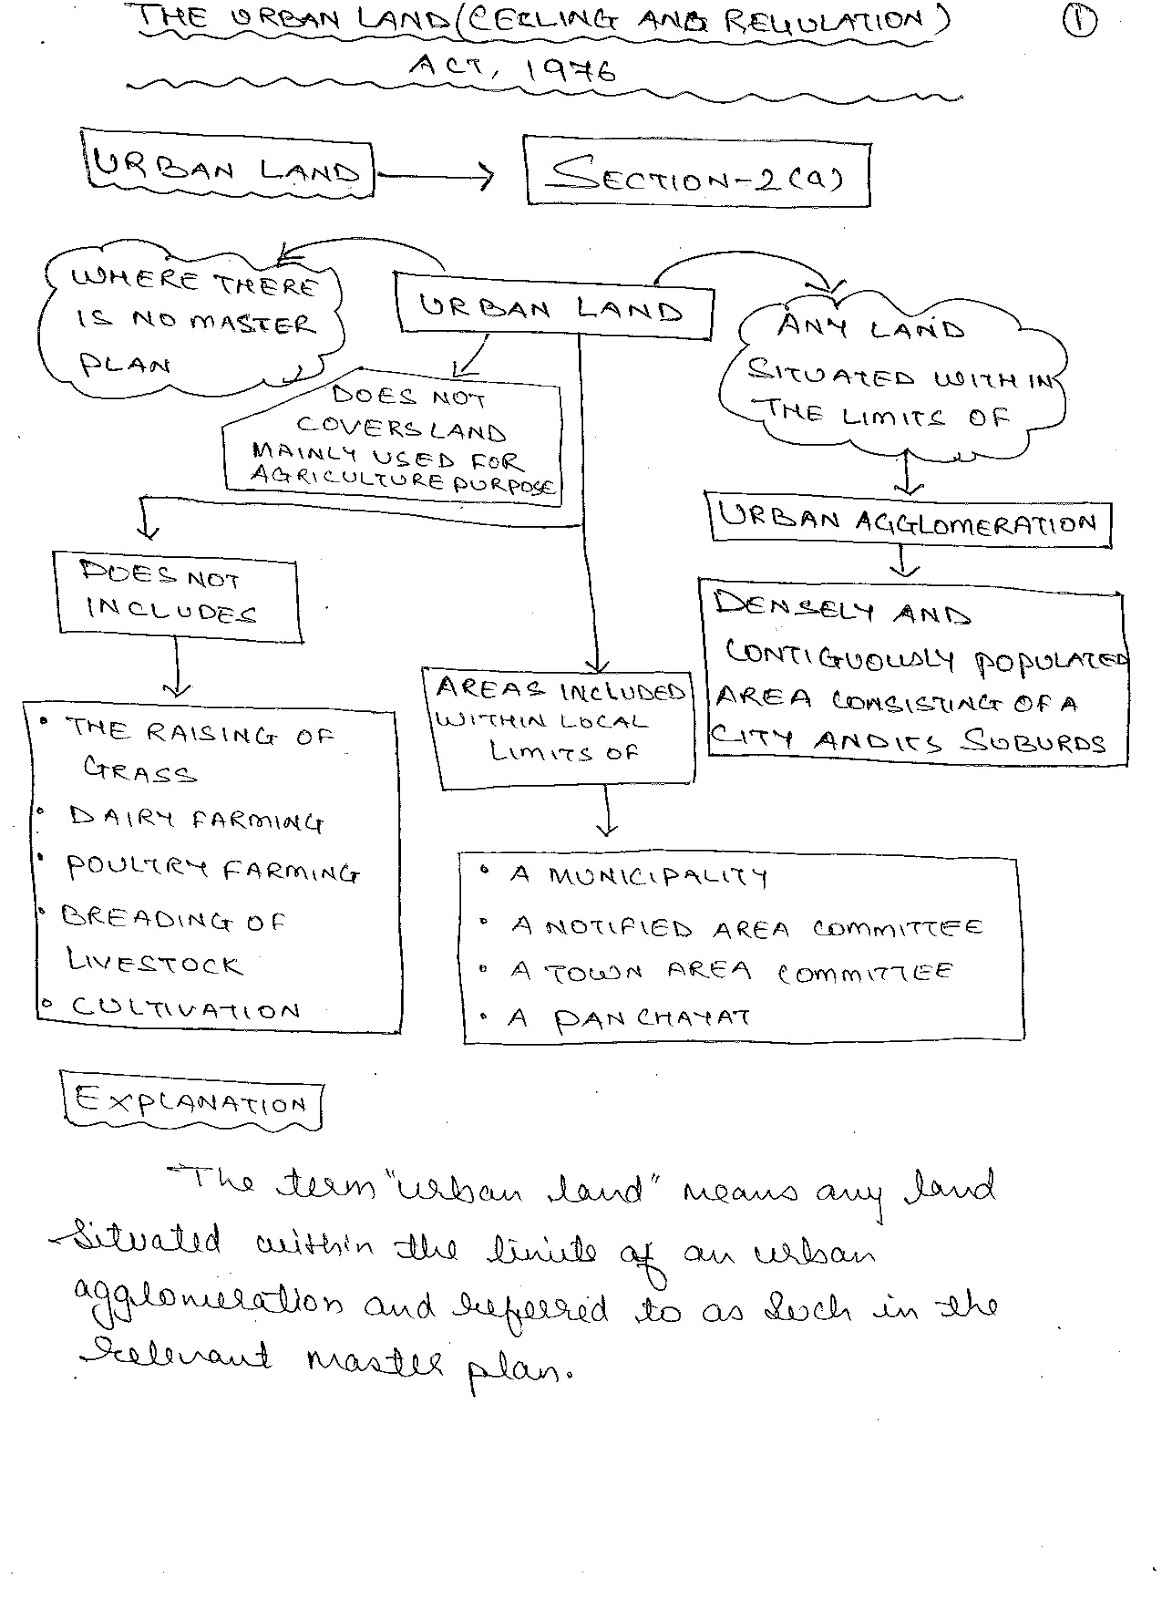 THE URBAN LAND (CEILING AND REGULATION)
ACT, 1976
①
URBAN LAND
SECTION-2(a)
WHERE THERE
IS NO MASTER
PLAN
URBAN LAND
ANY LAND
SITUATED WITHIN
THE LIMITS OF
DOES NOT
COVERS LAND
MAINLY USED FOR
AGRICULTURE PURPOSE
URBAN AGGLOMERATION
DOES NOT
INCLUDES
DENSELY AND
CONTIGUOUSLY POPULATED
AREA CONSISTING OF A
CITY AND ITS SUBURDS
AREAS INCLUDED
WITHIN LOCAL
LIMITS OF
• THE RAISING OF
GRASS
• DAIRY FARMING
• POULTRY FARMING
• BREADING OF
LIVESTOCK
• CULTIVATION
• A MUNICIPALITY
• A NOTIFIED AREA COMMITTEE
• A TOWN AREA COMMITTEE
• A PANCHAYAT
EXPLANATION
The term "urban land" means any land
situated within the limits of an urban
agglomeration and referred to as such in the
relevant master plan.